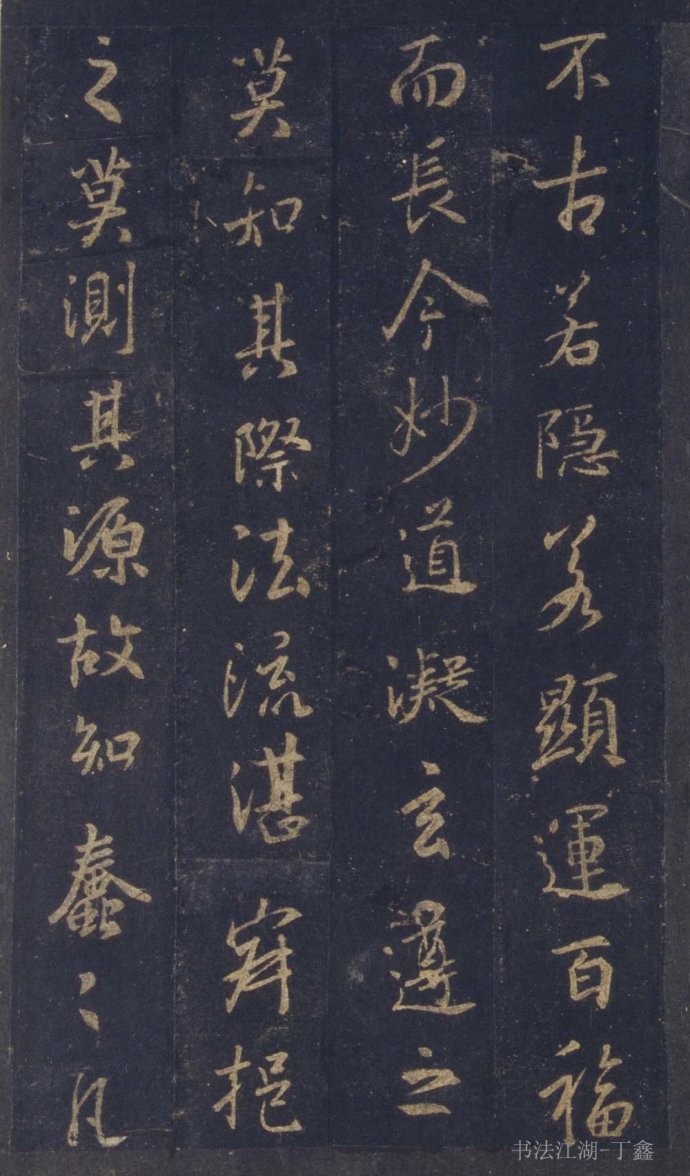 不古若隱若顯運百福
而長今妙道凝玄遵之
莫知其際法流湛寂挹
之莫測其源故知蠢〻凡
书法江湖-丁鑫